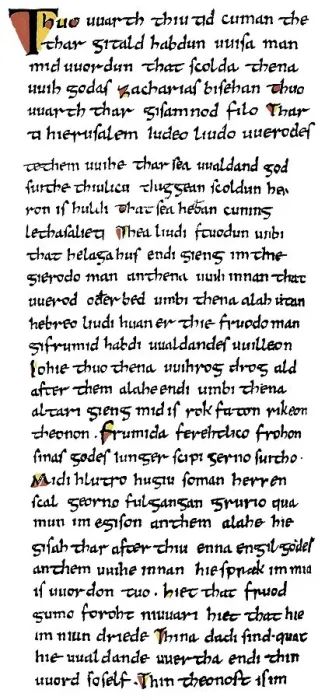 Thuo uuarth thiu tid cuman the
thar gitald habdun uuisa man
mid uuordun that scolda thena
uuih godas Zacharias bisehan thuo
uuarth thar gisamnod filo Thar
ti hierusalem Iudeo liudo uuerodes
te them uuihe thar sea uualdand god
suithe thiulicu thiggean scoldun her
ron is huldi That sea heƀan cuning
lethas alieti Thea liudi stuodun umbi
that helaga hus endi gieng im the
gierodo man an thena uuih innan that
uuerod oðer bed umbi thena alah utan
hebreo liudi huan er thie fruodo man
gifrumid habdi uualdandes uuilleon
So hie thuo thena uuihrog drog ald
after them alahe endi umbi thena
altari gieng mid is rokfaton rikeon
theonon. Frumida ferehtlico frohon
sinas godes iungerscipi gerno suitho.
Mid hlutro hugiu so man herren
scal georno fulgangan grurio qua
mun im egison an them alahe hie
gisah thar after thiu enna engil godes
an them uuihe innan hie sprak im mid
is uuordon tuo. hiet that fruod
gumo foroht ni uuari hiet that hie
im ni undriede Thina dadi sind. quat
hie uualdande uuertha endi thin
uuord so self. Thin theonost is im